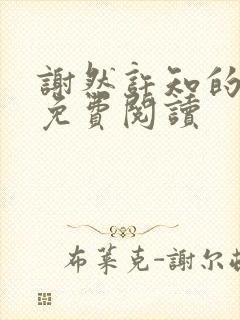 謝然許知的
免費閱讀
布萊克-謝尔